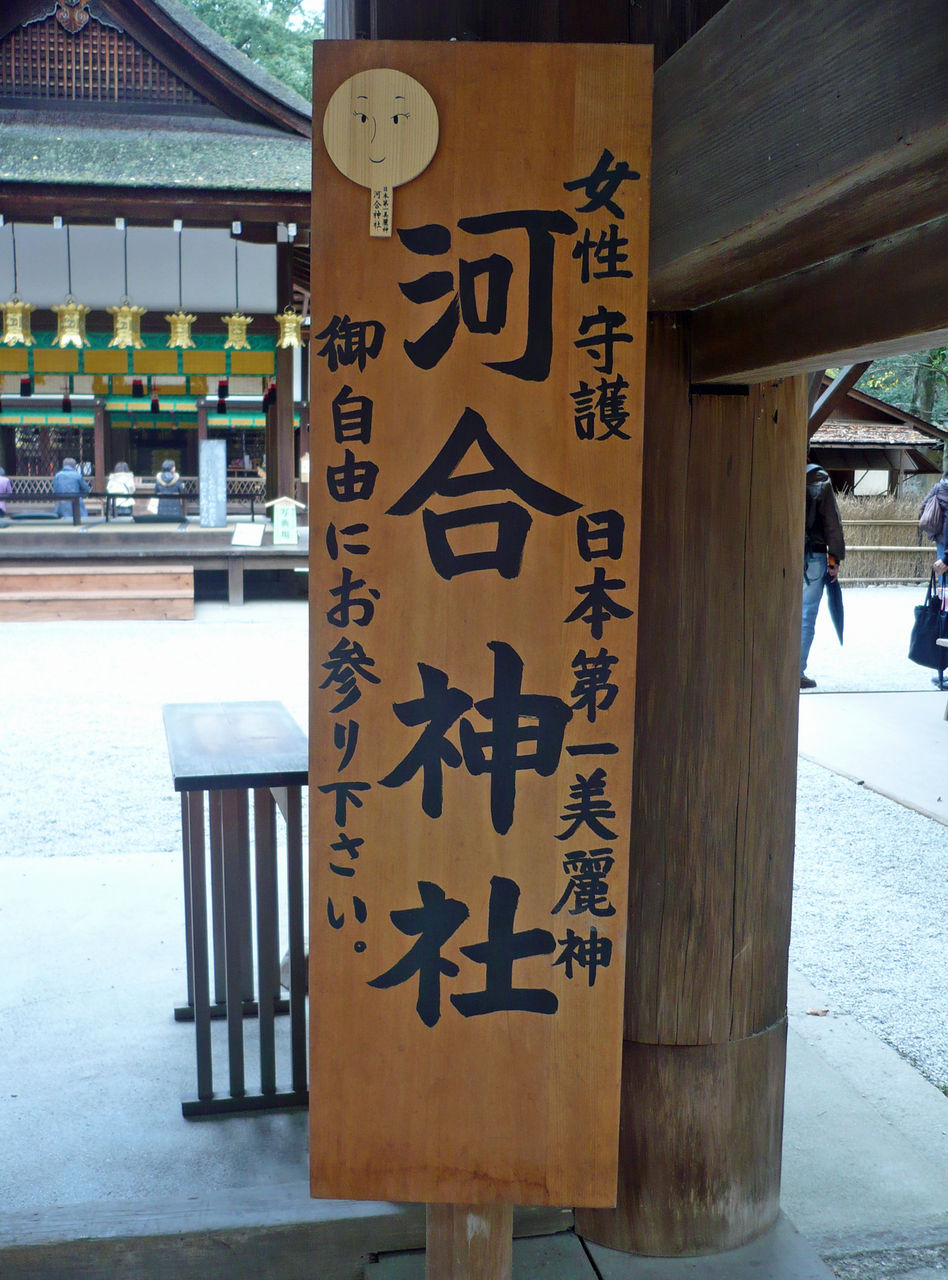 女性守護 日本第一美麗神
河合神社
御自由にお参り下さい。
日本第一美麗神
河合神社